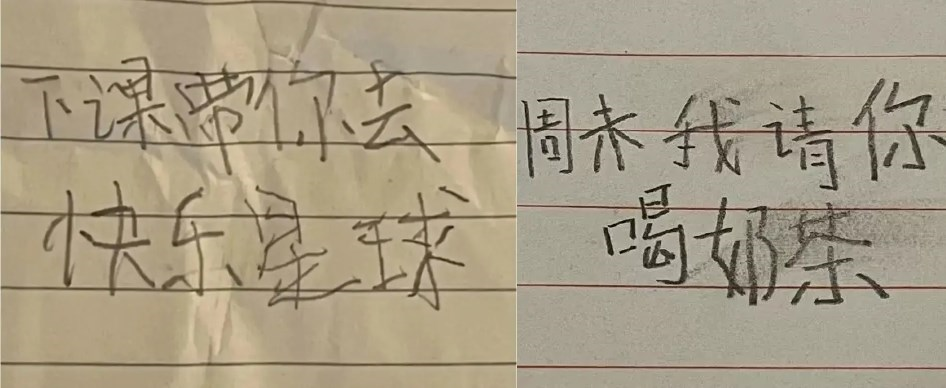 下课带你去
快乐星球
周末我请你
喝奶茶